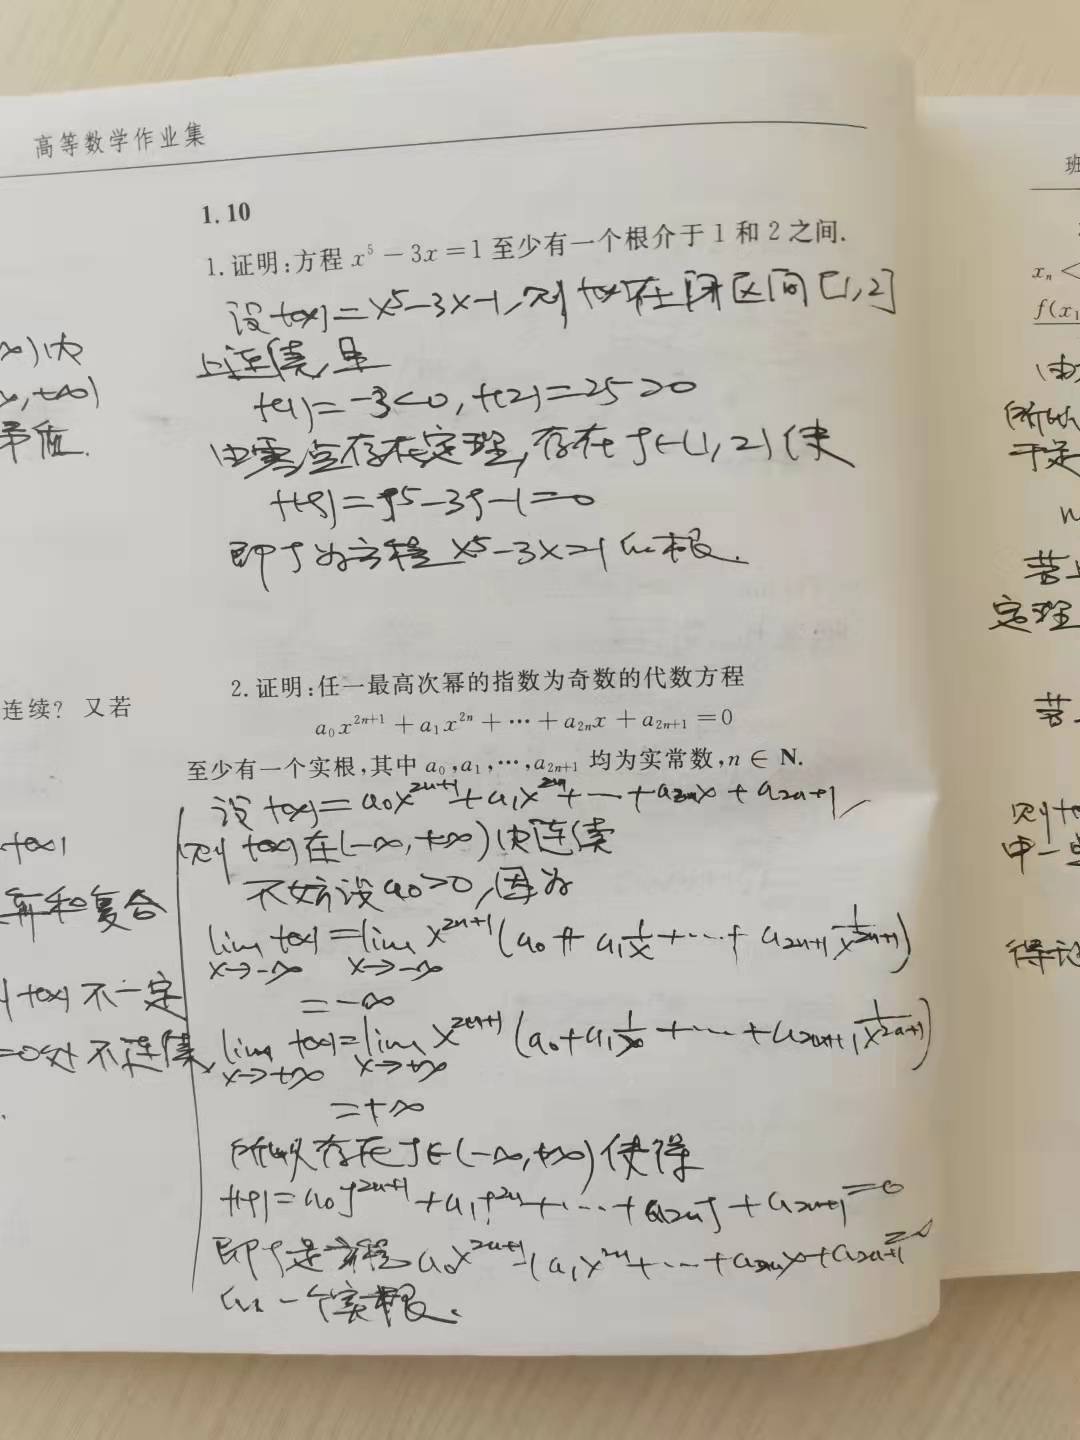 高等数学作业集
∞)内
x,+∞)
矛盾.
连续? 又若
f(x)
算和复合
f(x)不一定
=0处不连续
1.10
1.证明:方程 x⁵－3x＝1 至少有一个根介于 1 和 2 之间.
设f(x)=x⁵-3x-1,则f(x)在闭区间[1,2]
上连续,且
f(1)=-3<0,f(2)=25>0
由零点存在定理,存在ξ∈(1,2)使
f(ξ)=ξ⁵-3ξ-1=0
即ξ为方程x⁵-3x=1的根.
2.证明:任一最高次幂的指数为奇数的代数方程
a₀x²ⁿ⁺¹＋a₁x²ⁿ＋⋯＋a₂ₙx＋a₂ₙ₊₁＝0
至少有一个实根,其中 a₀,a₁,⋯,a₂ₙ₊₁ 均为实常数,n∈N.
设f(x)=a₀x²ⁿ⁺¹+a₁x²ⁿ+⋯+a₂ₙx+a₂ₙ₊₁,
则f(x)在(-∞,+∞)内连续
不妨设a₀>0,因为
lim x→-∞ f(x)=lim x→-∞ x²ⁿ⁺¹(a₀+a₁1/x+⋯+a₂ₙ₊₁1/x²ⁿ⁺¹)
=-∞
lim x→+∞ f(x)=lim x→+∞ x²ⁿ⁺¹(a₀+a₁1/x+⋯+a₂ₙ₊₁1/x²ⁿ⁺¹)
=+∞
所以存在ξ∈(-∞,+∞)使得
f(ξ)=a₀ξ²ⁿ⁺¹+a₁ξ²ⁿ+⋯+a₂ₙξ+a₂ₙ₊₁=0
即ξ是方程a₀x²ⁿ⁺¹+a₁x²ⁿ+⋯+a₂ₙx+a₂ₙ₊₁=0
的一个实根.
班
xₙ<
f(x₁
由
所以
于是
若
定理
若
则f
中一
得证